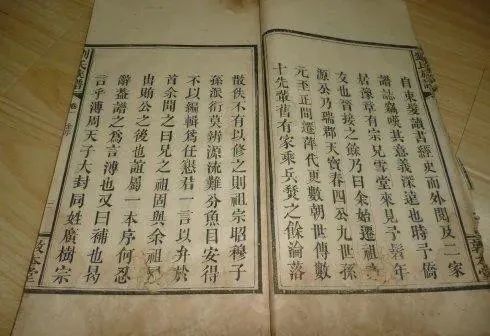 自束髮讀書經史而外閱及二家
譜誌竊嘆其意義深遠也時予僑
居章有宗兄雪堂來見予髫年
友也晉接之餘乃曰余始遷祖
源公乃瑞郡天寶春四公九世孫
元至正間遷萍代更數朝世傳數
十先輩舊有家乘兵燹之餘淪落
散佚不有以修之則祖宗昭穆子
孫派衍莫辨源流難分魚目安得
不以編輯爲任懇君一言以弁於
首余聞之曰兄之祖固與余祖
由公之後也誼屬一本序何忍
辭蓋譜之爲言溥也又曰補也曷
言乎溥周天子大封同姓廣樹宗
敦本堂